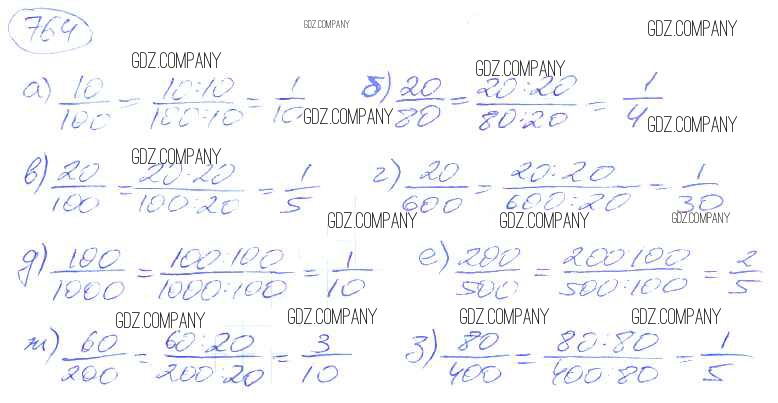 764
GDZ.COMPANY
GDZ.COMPANY
GDZ.COMPANY GDZ.COMPANY
а) 10/100 = 10:10/100:10 = 1/10 б) 20/80 = 20:20/80:20 = 1/4
GDZ.COMPANY GDZ.COMPANY
GDZ.COMPANY
в) 20/100 = 20:20/100:20 = 1/5 г) 20/600 = 20:20/600:20 = 1/30
GDZ.COMPANY GDZ.COMPANY GDZ.COMPANY
д) 100/1000 = 100:100/1000:100 = 1/10 е) 200/500 = 200:100/500:100 = 2/5
GDZ.COMPANY GDZ.COMPANY GDZ.COMPANY GDZ.COMPANY
ж) 60/200 = 60:20/200:20 = 3/10 з) 80/400 = 80:80/400:80 = 1/5